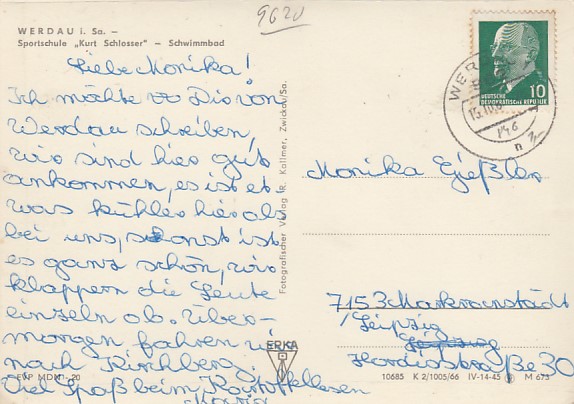 9620
WERDAU i. Sa. –
Sportschule „Kurt Schlosser" – Schwimmbad
Liebe Monika!
Ich möchte Dir von
Werdau schreiben,
wir sind hier gut
ankommen, es ist et-
was kühler hier als
bei uns, sonst ist
es ganz schön, wir
klappern die Leute
einzeln ab. Über-
morgen fahren wir
nach Kirchberg.
Viel Spaß beim Kartoffellesen
EVP MDN -.20
Fotografischer Verlag R. Kallmer, Zwickau/Sa.
ERKA
DEUTSCHE
DEMOKRATISCHE REPUBLIK
10
WERDAU
n
Monika Gießler
7153 Markranstädt
/Leipzig
Hordisstraße 30
10685 K 2/1005/66 IV-14-45 M 673